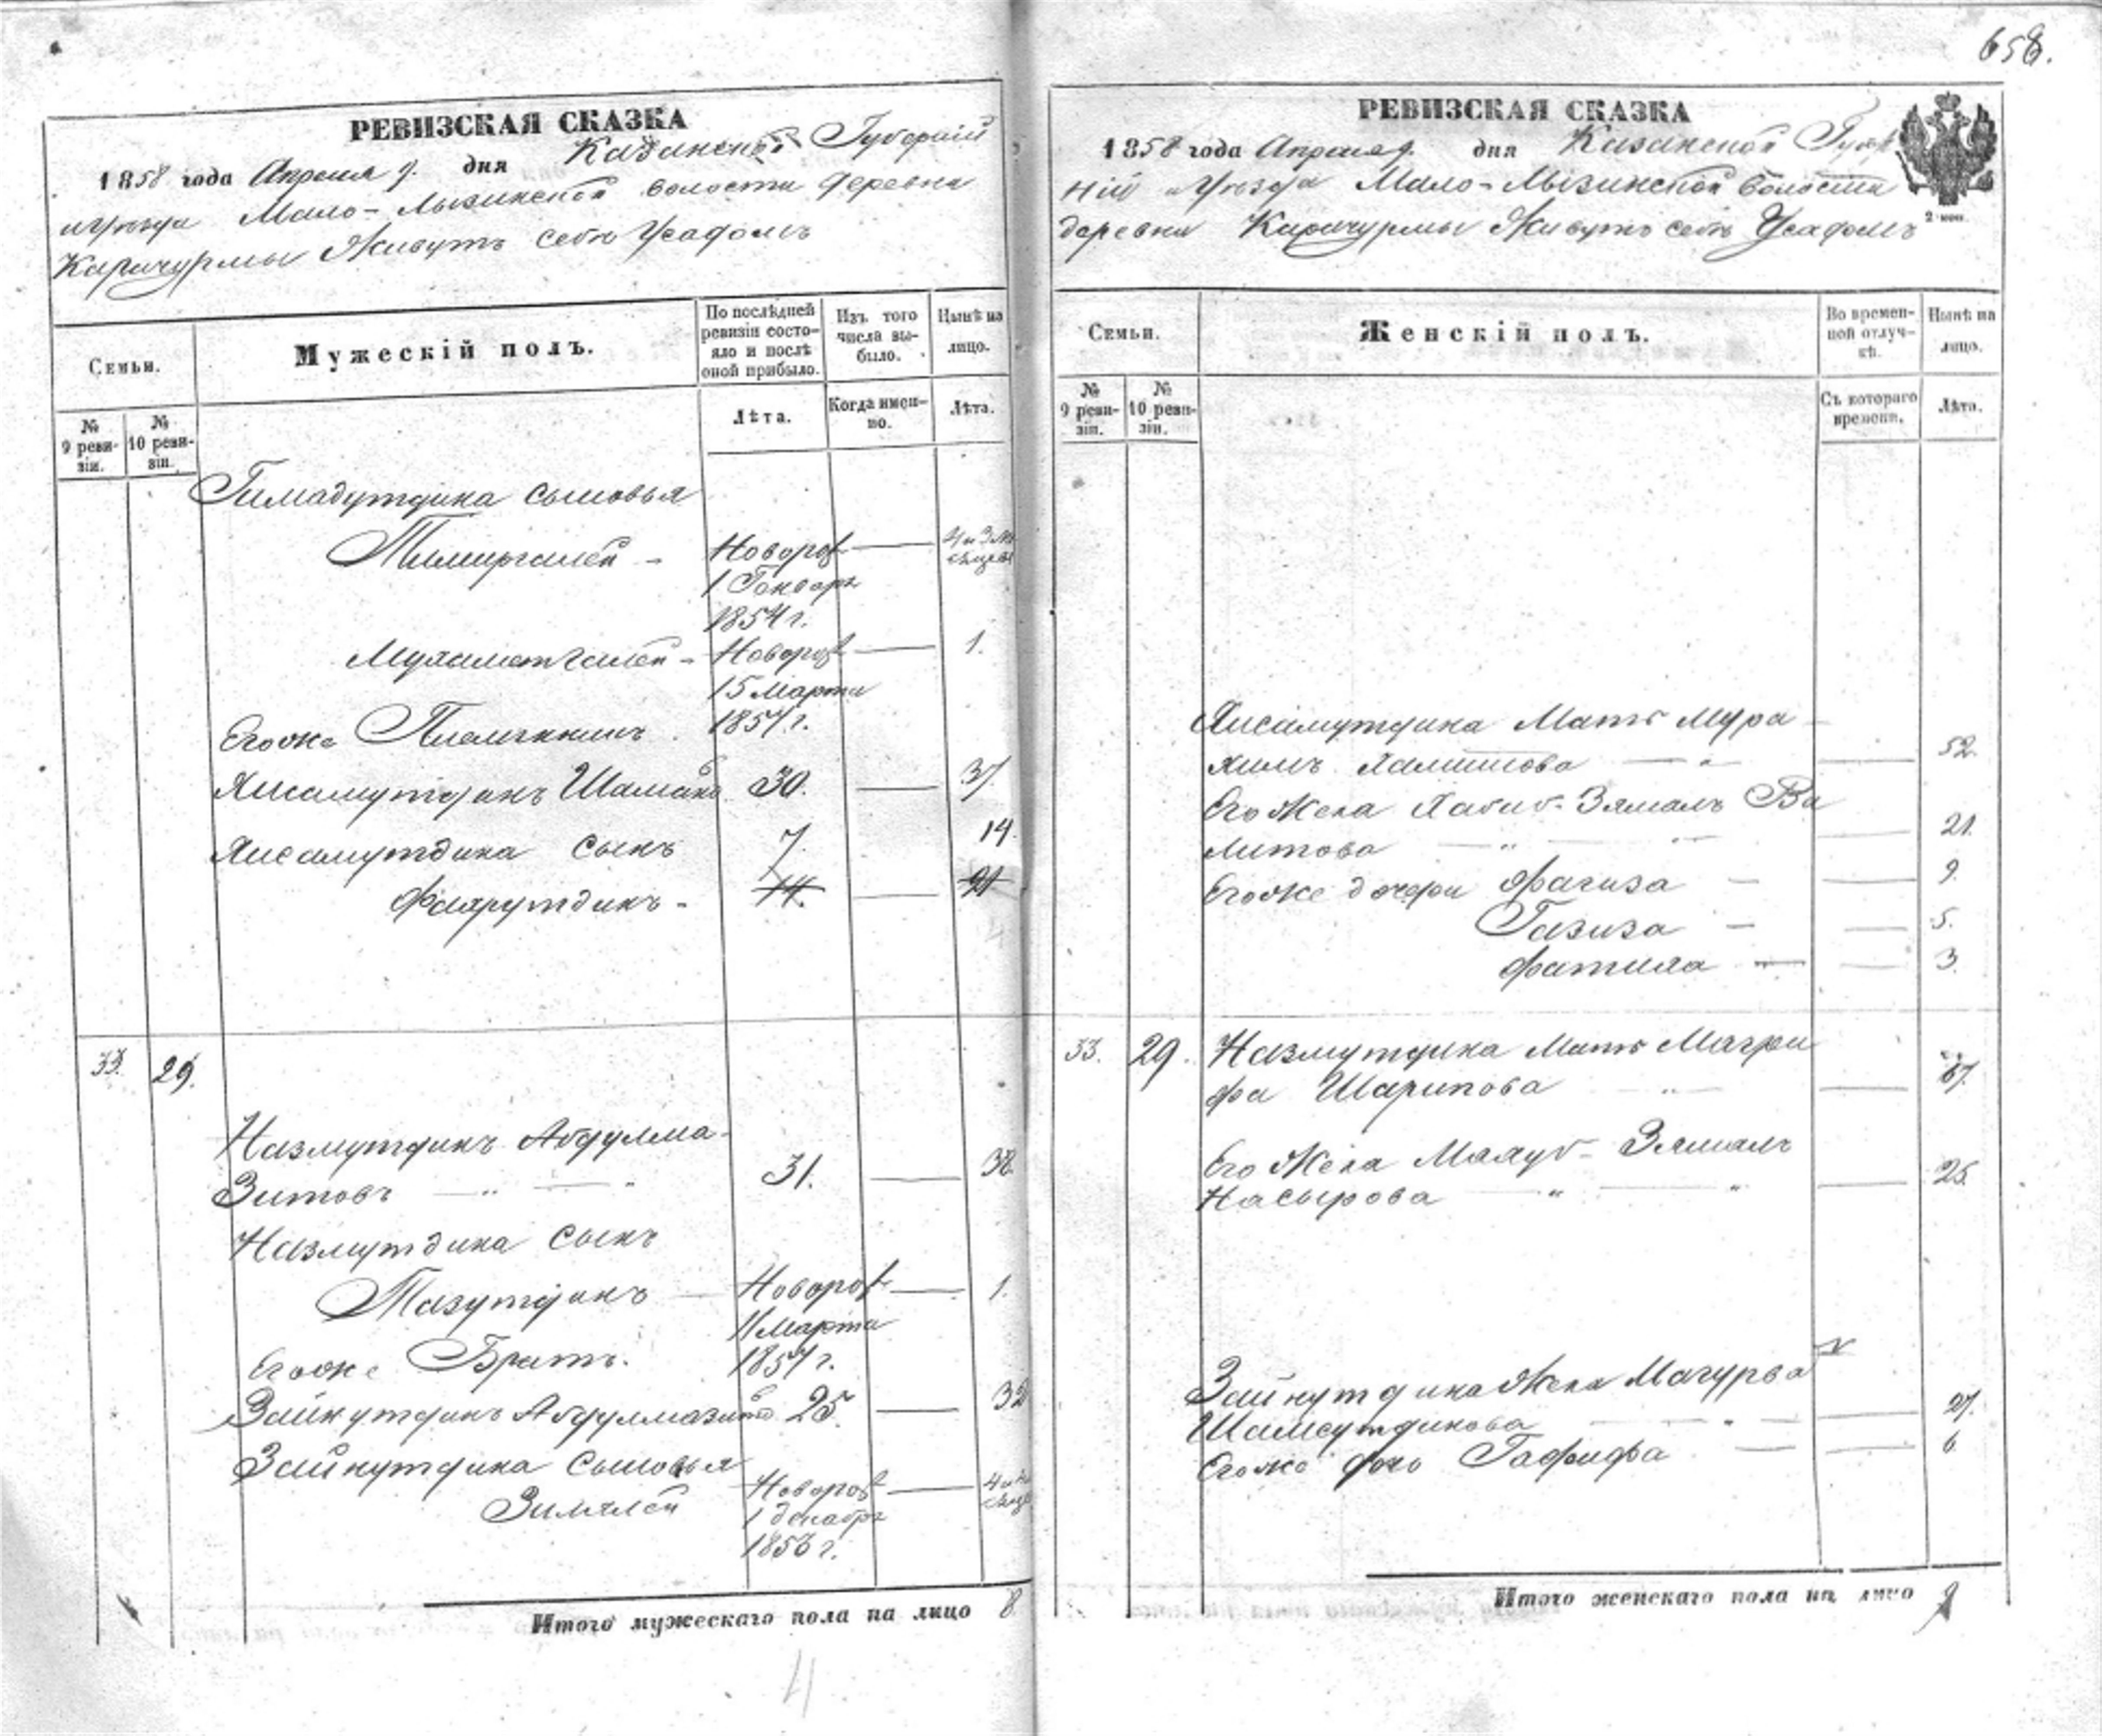 658.
РЕВИЗСКАЯ СКАЗКА
1858 года Апреля 9. дня Казанской Губерніи
и уезда Мало-Лызинской волости деревни
Карачурмы Живутъ себѣ Усадомъ
Семьи.
Мужескій полъ.
По послѣдней ревизіи состояло и послѣ оной прибыло.
Изъ того числа выбыло.
Нынѣ на лицо.
№ 9 ревизіи.
№ 10 ревизіи.
Лѣта.
Когда именно.
Лѣта.
Гимадутдина сыновья
Тимиргалей - Новорож 4 и 3 мѣ
1 Генваря сяцовъ
1854 г.
Мухаметгалей - Новорож 1.
15 Марта
Егоже Племянникъ 1857 г.
Хисамутдинъ Шамъсков 30. 37.
Хисамутдина сынъ 7. 14.
Фахрутдинъ - 14. 21
33. 29.
Назмутдинъ Абдулма-
Зитовъ 31. 38
Назмутдина сынъ
Тазутдинъ Новорож 1.
11 Марта
Егоже Братъ. 1857 г.
Зайнутдинъ Абдулмазитов 25. 32
Зайнутдина сыновья
Зимялей Новорож
1 декабря
1853 г.
Итого мужескаго пола на лицо 8
4
РЕВИЗСКАЯ СКАЗКА
1858 года Апреля 9. дня Казанской Губер
ній и Уѣзда Мало-Лызинской Волости
деревни Карачурмы Живутъ себѣ Усадомъ
2 коп.
Семьи.
Женскій полъ.
Во временной отлучкѣ.
Нынѣ на лицо.
№ 9 ревизіи.
№ 10 ревизіи.
Съ котораго времени.
Лѣта.
Хисамутдина Мать Мура-
химъ Халитова 52.
Его Жена Хабиб-Зямалъ Ва
литова 21.
Егоже дочери Фагиза 9.
Газиза - 5.
Фатиха 3.
33. 29. Назмутдина Мать Магри
фа Шарипова 67.
Его Жена Махуб-Зямалъ
Насырова 25.
Зайнутдина Жена Магурва
Шамсутдинова 27.
Егоже дочь Гафифа 6
Итого женскаго пола на лицо 9